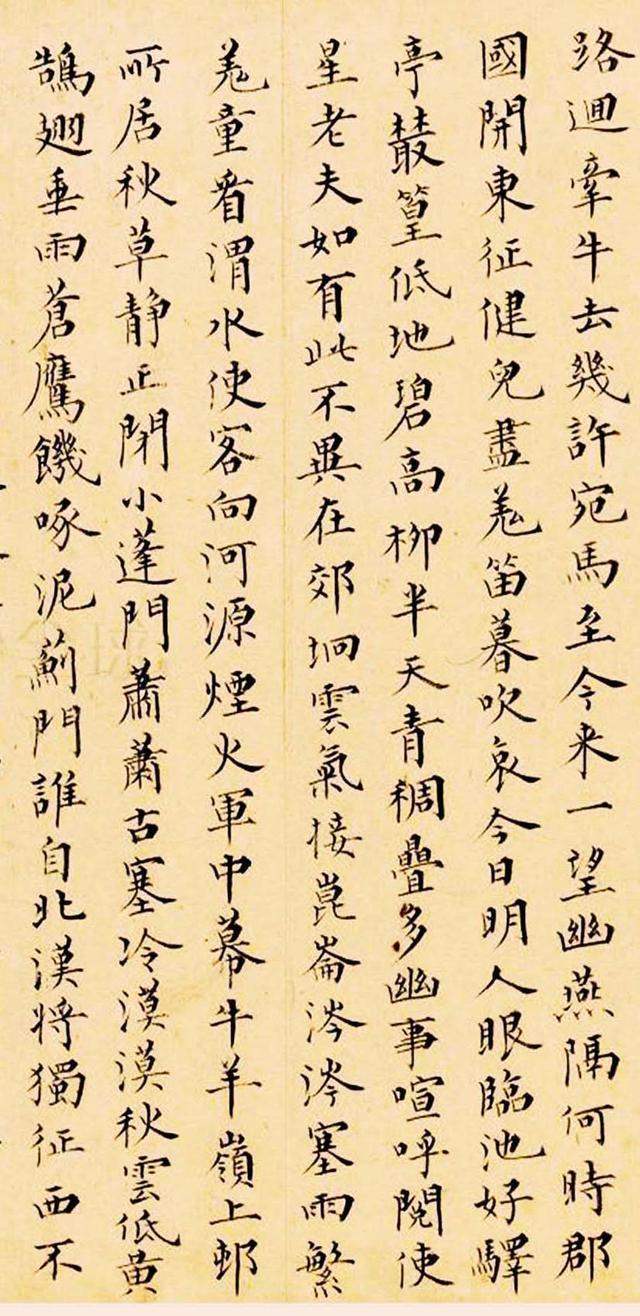 路迴牽牛去幾許宛馬至今来一望幽燕隔何時郡
國開東征健兒盡羌笛暮吹哀今日明人眼臨池好驛
亭叢篁低地碧高柳半天青稠疊多幽事喧呼閱使
星老夫如有此不異在郊坰雲氣接崑崙涔涔塞雨繁
羌童看渭水使客向河源煙火軍中幕牛羊嶺上邨
所居秋草静正閉小蓬門蕭蕭古塞冷漠漠秋雲低黃
鵠翅垂雨蒼鷹饑啄泥薊門誰自北漢將獨征西不